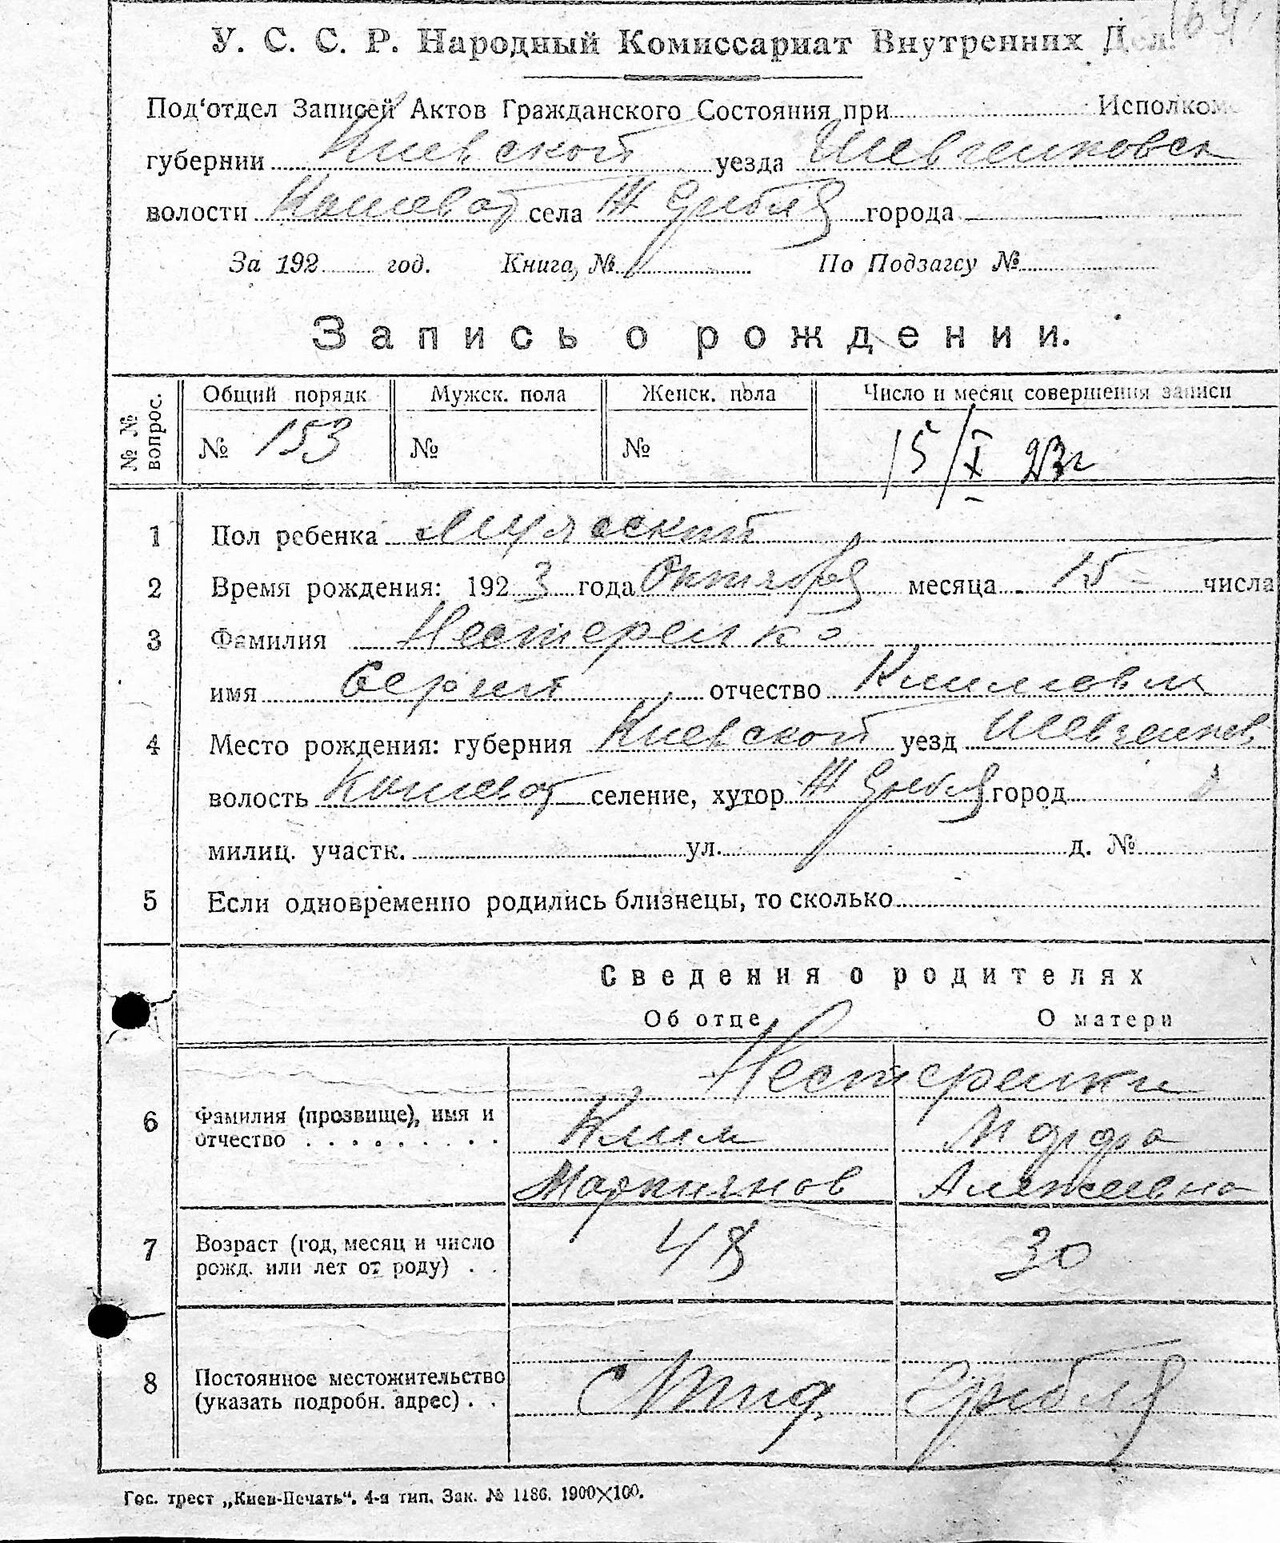 164.
У. С. С. Р. Народный Комиссариат Внутренних Дел.
Под'отдел Записей Актов Гражданского Состояния при Исполком
губернии Киевской уезда Шевченковск
волости Кошеват села Ж Гребля города
За 192 год. Книга, № По Подзагсу №
Запись о рождении.
№ № вопрос. Общий порядк Мужск. пола Женск. пола Число и месяц совершения записи
№ 153 № № 15/X 23г
1 Пол ребенка Мужеский
2 Время рождения: 1923 года Октября месяца 15 числа
3 Фамилия Нестеренко
имя Сергей отчество Климов
4 Место рождения: губерния Киевской уезд Шевченков
волость Кошеват селение, хутор Ж Гребля город
милиц. участк. ул. д. №
5 Если одновременно родились близнецы, то сколько
Сведения о родителях
Об отце О матери
Нестеренки
6 Фамилия (прозвище), имя и Клим Марфа
отчество . . . . . . . . . Маркиянов Алексеевна
7 Возраст (год, месяц и число 48 30
рожд. или лет от роду) . .
8 Постоянное местожительство с Гребля
(указать подробн. адрес) . .
Гос. трест „Киев-Печать“. 4-я тип. Зак. № 1186. 1900×100.